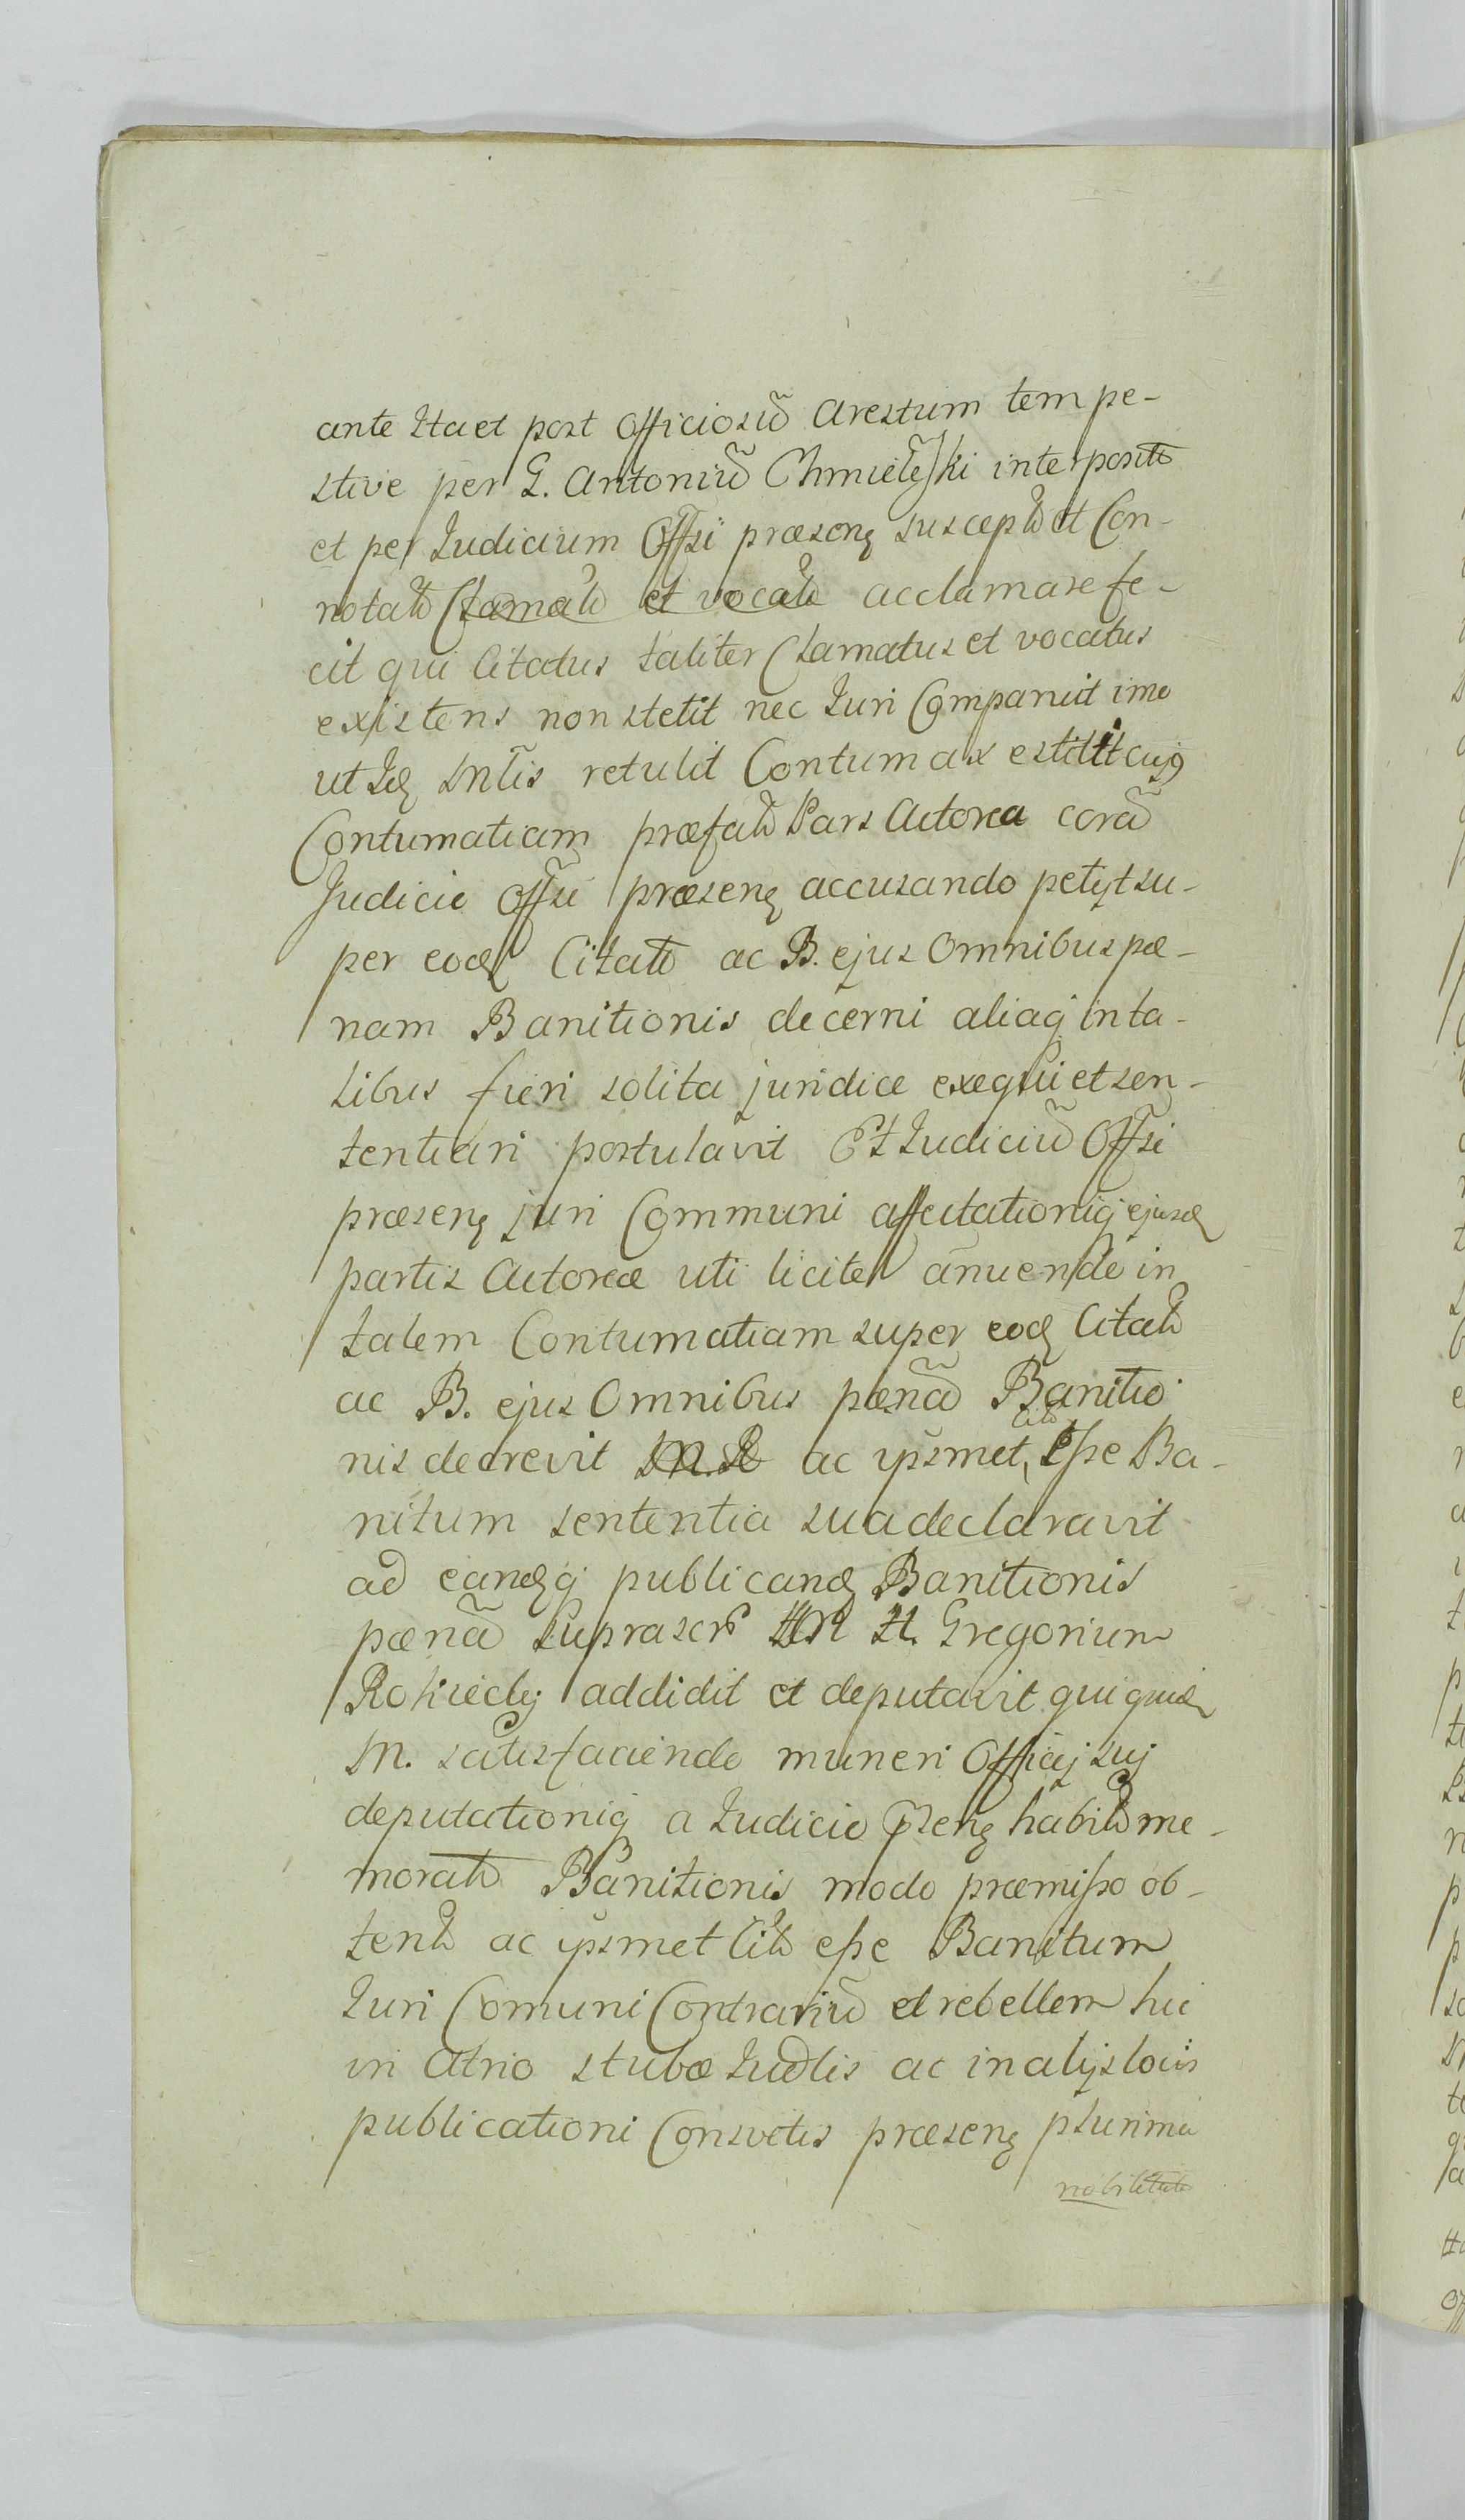 ante Ita et post Officiosũ Arestum tempe-
stive per G. Antoniũ Chmielẽski interposit
et per Iudicium Offsi præsenꝫ suscept et Con-
notat Clamat et vocat acclamare fe-
cit qui Citatus taliter Clamatus et vocatus
existens non stetit nec Iuri Comparuit imo
ut Idꝫ Mlis retulit Contumax estitit cujꝰ
Contumatiam præfat Pars Actorea corã
Judicio Offsi præsenꝫ accusando petyt su-
per eodꝫ Citat ac B. ejus Omnibus pæ-
nam Banitionis decerni aliaqꝫ in ta-
libus fieri solita juridice exequi et sen-
tentiari postulavit Et Iudiciũ Offsi
præsenꝫ juri Communi affectationiqꝫ ejusdꝫ
partis Actoreæ uti licite añuendo in
talem Contumatiam super eodꝫ Citat
ac B. ejus Omnibus pænã Banitio-
cit
nis decrevit ac ipsmet esse Ba-
nitum sententia sua declaravit
ad eandꝫqꝫ publicandꝫ Banitionis
pænã suprascr M. H. Gregorium
Rokicciy addidit et deputavit qui quidꝫ
M. satisfaciendo muneri Officij suj
deputationiqꝫ a Iudicio p̃senꝫ habit me-
morat Banitionis modo præmisso ob-
tent ac ipsmet Cit esse Banitum
Iuri Comuni Contrariũ et rebellem hic
in Atrio stubæ Iudlis ac in alijs locis
publicationi Consvetis præsenꝫ plurima
nobilitate